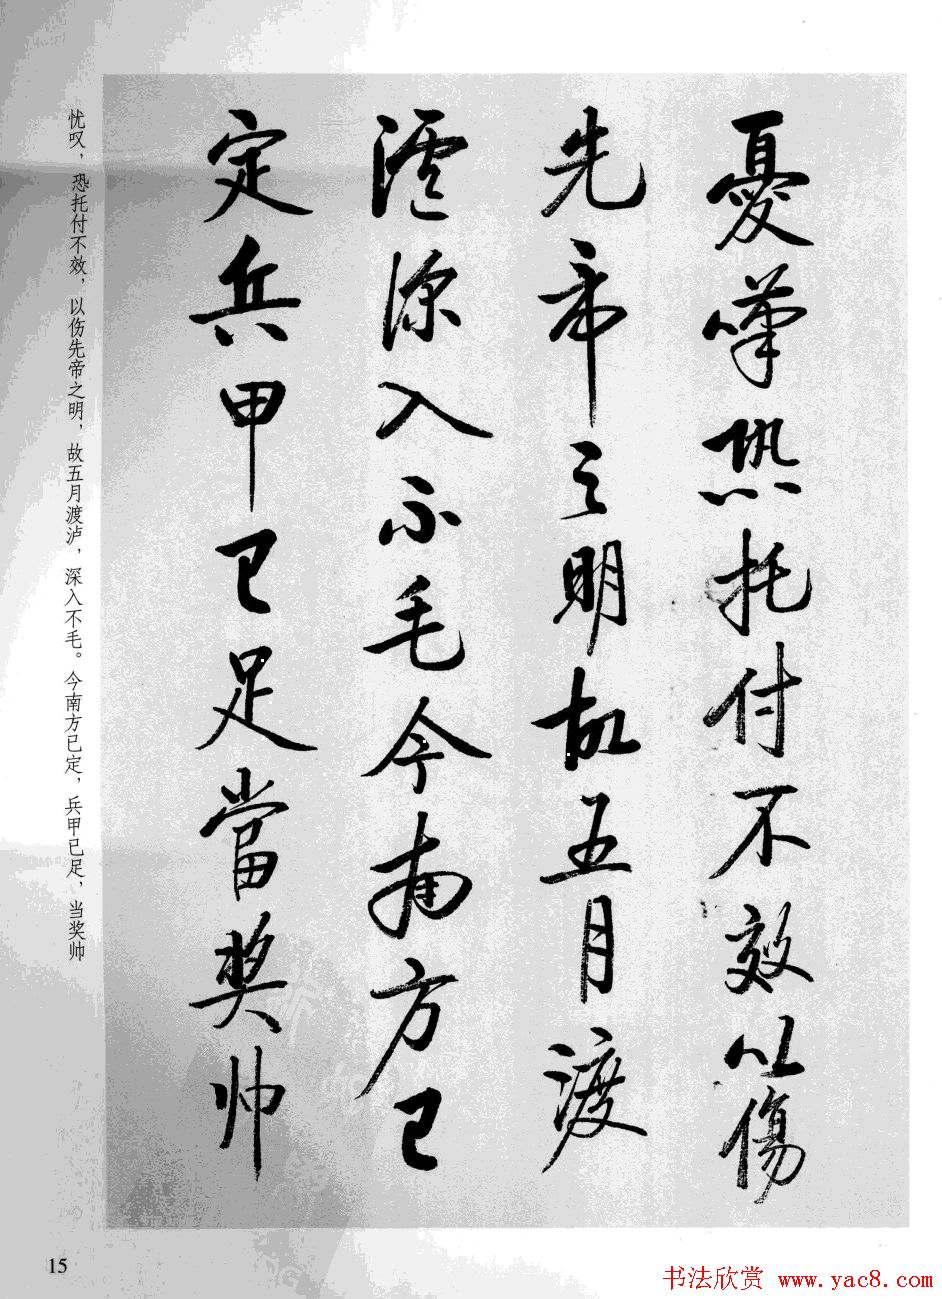 憂嘆恐托付不效以傷
先帝之明故五月渡
瀘深入不毛今南方已
定兵甲已足當奬帅
忧叹，恐托付不效，以伤先帝之明，故五月渡泸，深入不毛。今南方已定，兵甲已足，当奖帅
15
书法欣赏 www.yac8.com